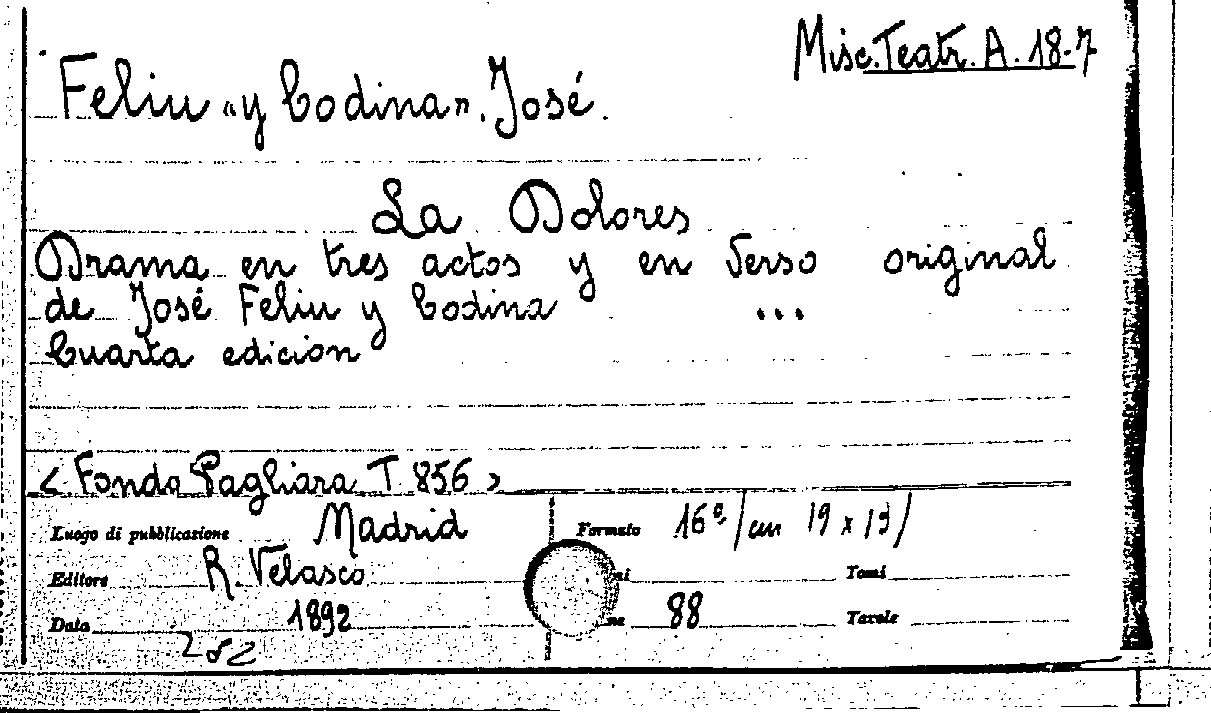 Misc. Teatr. A. 18-7
Feliu «y Codina». José.
La Dolores
Drama en tres actos y en verso original
de José Feliu y Codina ...
Cuarta edicion
< Fondo Pagliara T 856 >
Luogo di pubblicazione Madrid Formato 16º /cm 19 x 13/
Editore R. Velasco Tomi
Data 1892 88 Tavole
282